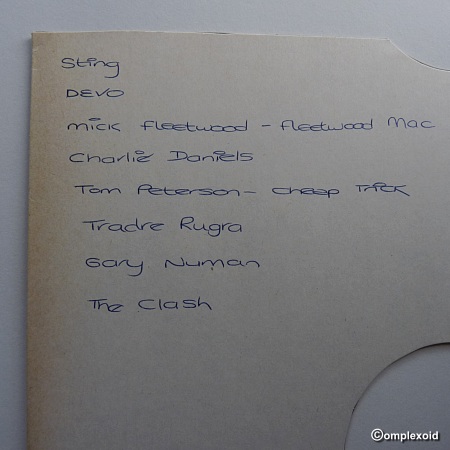 Sting
DEVO
mick fleetwood - fleetwood Mac
Charlie Daniels
Tom Peterson - Cheap Trick
Tradre Rugra
Gary Numan
The Clash
©omplexoid